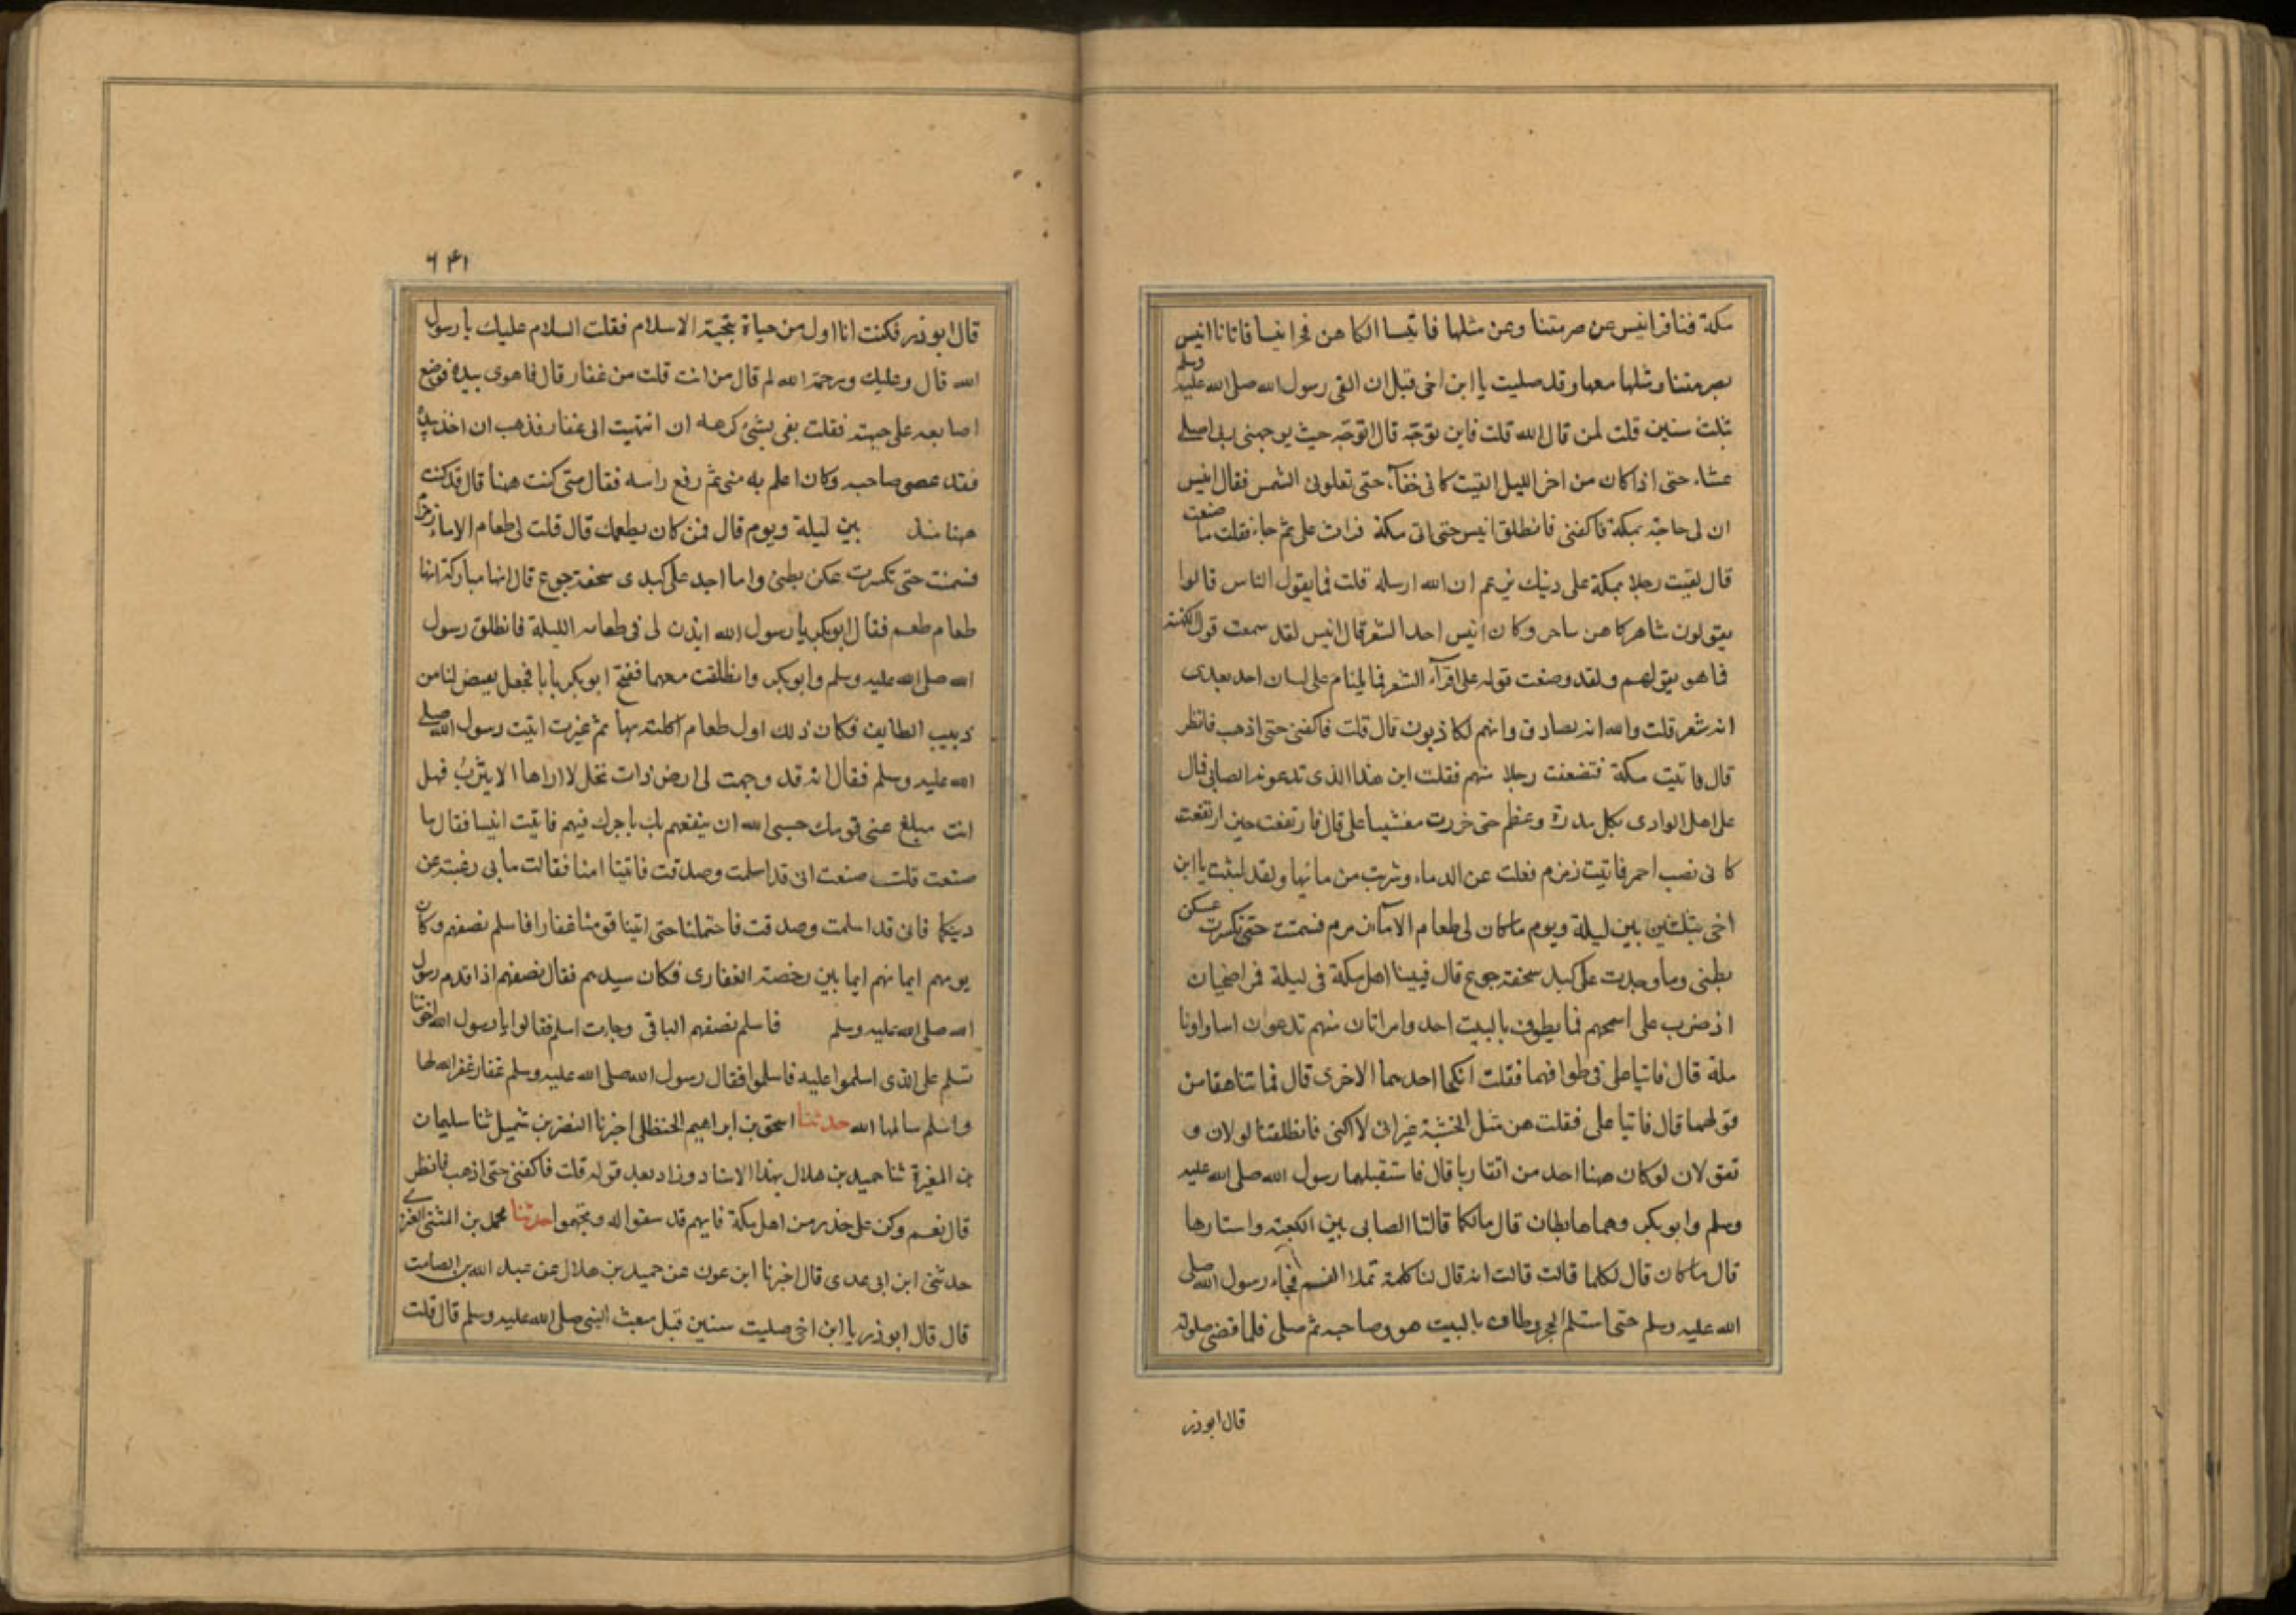 مكة فنافر انيس عن صرمتنا وعن مثلها فاتيا الكاهن فخر انيسا فاتانا انيس
بصرمتنا ومثلها معها وقد صليت يا ابن اخى قبل ان القى رسول الله صلى الله عليه وسلم
بثلث سنين قلت لمن قال لله قلت فاين توجه قال اتوجه حيث يوجهنى ربى اصلى
عشاء حتى اذا كان من اخر الليل القيت كانى خفآء حتى تعلونى الشمس فقال انيس
ان لى حاجة بمكة فاكفنى فانطلق انيس حتى اتى مكة فراث على ثم جاء فقلت ما صنعت
قال لقيت رجلا بمكة على دينك يزعم ان الله ارسله قلت فما يقول الناس قالوا
يقولون شاعر كاهن ساحر وكان انيس احد الشعر قال انيس لقد سمعت قول الكهنة
فما هو بقولهم ولقد وضعت قوله على اقرآء الشعر فما يلتام على لسان احد بعدى
انه شعر قلت والله انه لصادق وانهم لكاذبون قال قلت فاكفنى حتى اذهب فانظر
قال فاتيت مكة فتضعفت رجلا منهم فقلت اين هذا الذى تدعونه الصابى قال
على اهل الوادى بكل مدرة وعظم حتى خررت مغشيا على قال فارتفعت حين ارتفعت
كانى نصب احمر فاتيت زمزم فغلت عن الدماء وشربت من مائها ولقد لبثت يا ابن
اخى بثلثين بين ليلة ويوم ما كان لى طعام الا مآء زمزم فسمنت حتى تكسرت عكن
بطنى وما وجدت على كبد سخفة جوع قال فبينا اهل مكة فى ليلة قمر اضحيان
اذ ضرب على اسمخهم فما يطوف بالبيت احد وامراتان منهم تدعوان اسا واونا
ملة قال فاتيا على فى طوافهما فقلت انكحا احدهما الاخرى قال فما تناهقا من
قولهما قال فاتيا على فقلت هن مثل الخشبة غير انى لا اكنى فانطلقتا لولان و
تقولان لو كان ههنا احد من انفاربا قال فاستقبلهما رسول الله صلى الله عليه
وسلم وابوبكر وهما هابطان قال مالكما قالتا الصابى بين الكعبة واستارها
قال ما كان قال لكلما قالت قالت انه قال لنا كلمة تملا الفسم فجاء رسول الله صلى
الله عليه وسلم حتى استلم الحجر وطاف بالبيت هو وصاحبه ثم صلى فلما قضى صلوته
قال ابوذر
٦٤١
قال ابوذر فكنت انا اول من حياة بتحية الاسلام فقلت السلام عليك يا رسول
الله قال وعليك ورحمة الله لم قال من انت قلت من غفار قال فاهوى بيده فوضع
اصابعه على جبهته فقلت بفى بشئ كرهه ان انتهيت الى غفار فذهب ان اخذ بيده
فقد عصى صاحبه وكان اعلم به منى ثم رفع راسه فقال متى كنت ههنا قال قد كنت
ههنا منذ بين ليلة ويوم قال فمن كان يطعمك قال قلت لى طعام الا ماء زمزم
فسمنت حتى تكسرت عكن بطنى وما اجد على كبدى سخفة جوع قال انها مباركة انها
طعام طعم فقال ابوبكر يا رسول الله ايذن لى فى طعامه الليلة فانطلق رسول
الله صلى الله عليه وسلم وابوبكر وانطلقت معهما ففتح ابوبكر بابا فجعل يقبض لنا من
زبيب الطايف فكان ذلك اول طعام اكلته بها ثم غبرت اتيت رسول الله صلى
الله عليه وسلم فقال انه قد وجهت لى ارض ذات نخل لا اراها الا يثرب فهل
انت مبلغ عنى قومك حسبى الله ان ينفعهم بك ياجرك فيهم فاتيت انيسا فقال ما
صنعت قلت صنعت انى قد اسلمت وصدقت فاتينا امنا فقالت ما بى رغبة عن
دينكما فانى قد اسلمت وصدقت فاحتملنا حتى اتينا قومنا غفارا فاسلم نصفهم وكان
يومهم ايمانهم ايما بين رخصة الغفارى فكان سيدهم فقال نصفهم اذا قدم رسول
الله صلى الله عليه وسلم فاسلم نصفهم الباقى وجاءت اسلم فقالوا يا رسول الله اخوتنا
تسلم على الذى اسلموا عليه فاسلموا فقال رسول الله صلى الله عليه وسلم غفار غفر الله لها
واسلم سالمها الله حدثنا اسحق بن ابراهيم الحنظلى اخبرنا النضر بن شميل ثنا سليمان
بن المغيرة ثنا حميد بن هلال بهذا الاسناد وزاد بعد قوله قلت فاكفنى حتى اذهب فانظر
قال نعم وكن على حذر من اهل مكة فانهم قد سفوا له وتجهموا حدثنا محمد بن المثنى العنزى
حدثنى ابن ابى عدى قال اخبرنا ابن عون عن حميد بن هلال عن عبد الله بن الصامت
قال قال ابوذر يا ابن اخى صليت سنين قبل مبعث النبى صلى الله عليه وسلم قال قلت